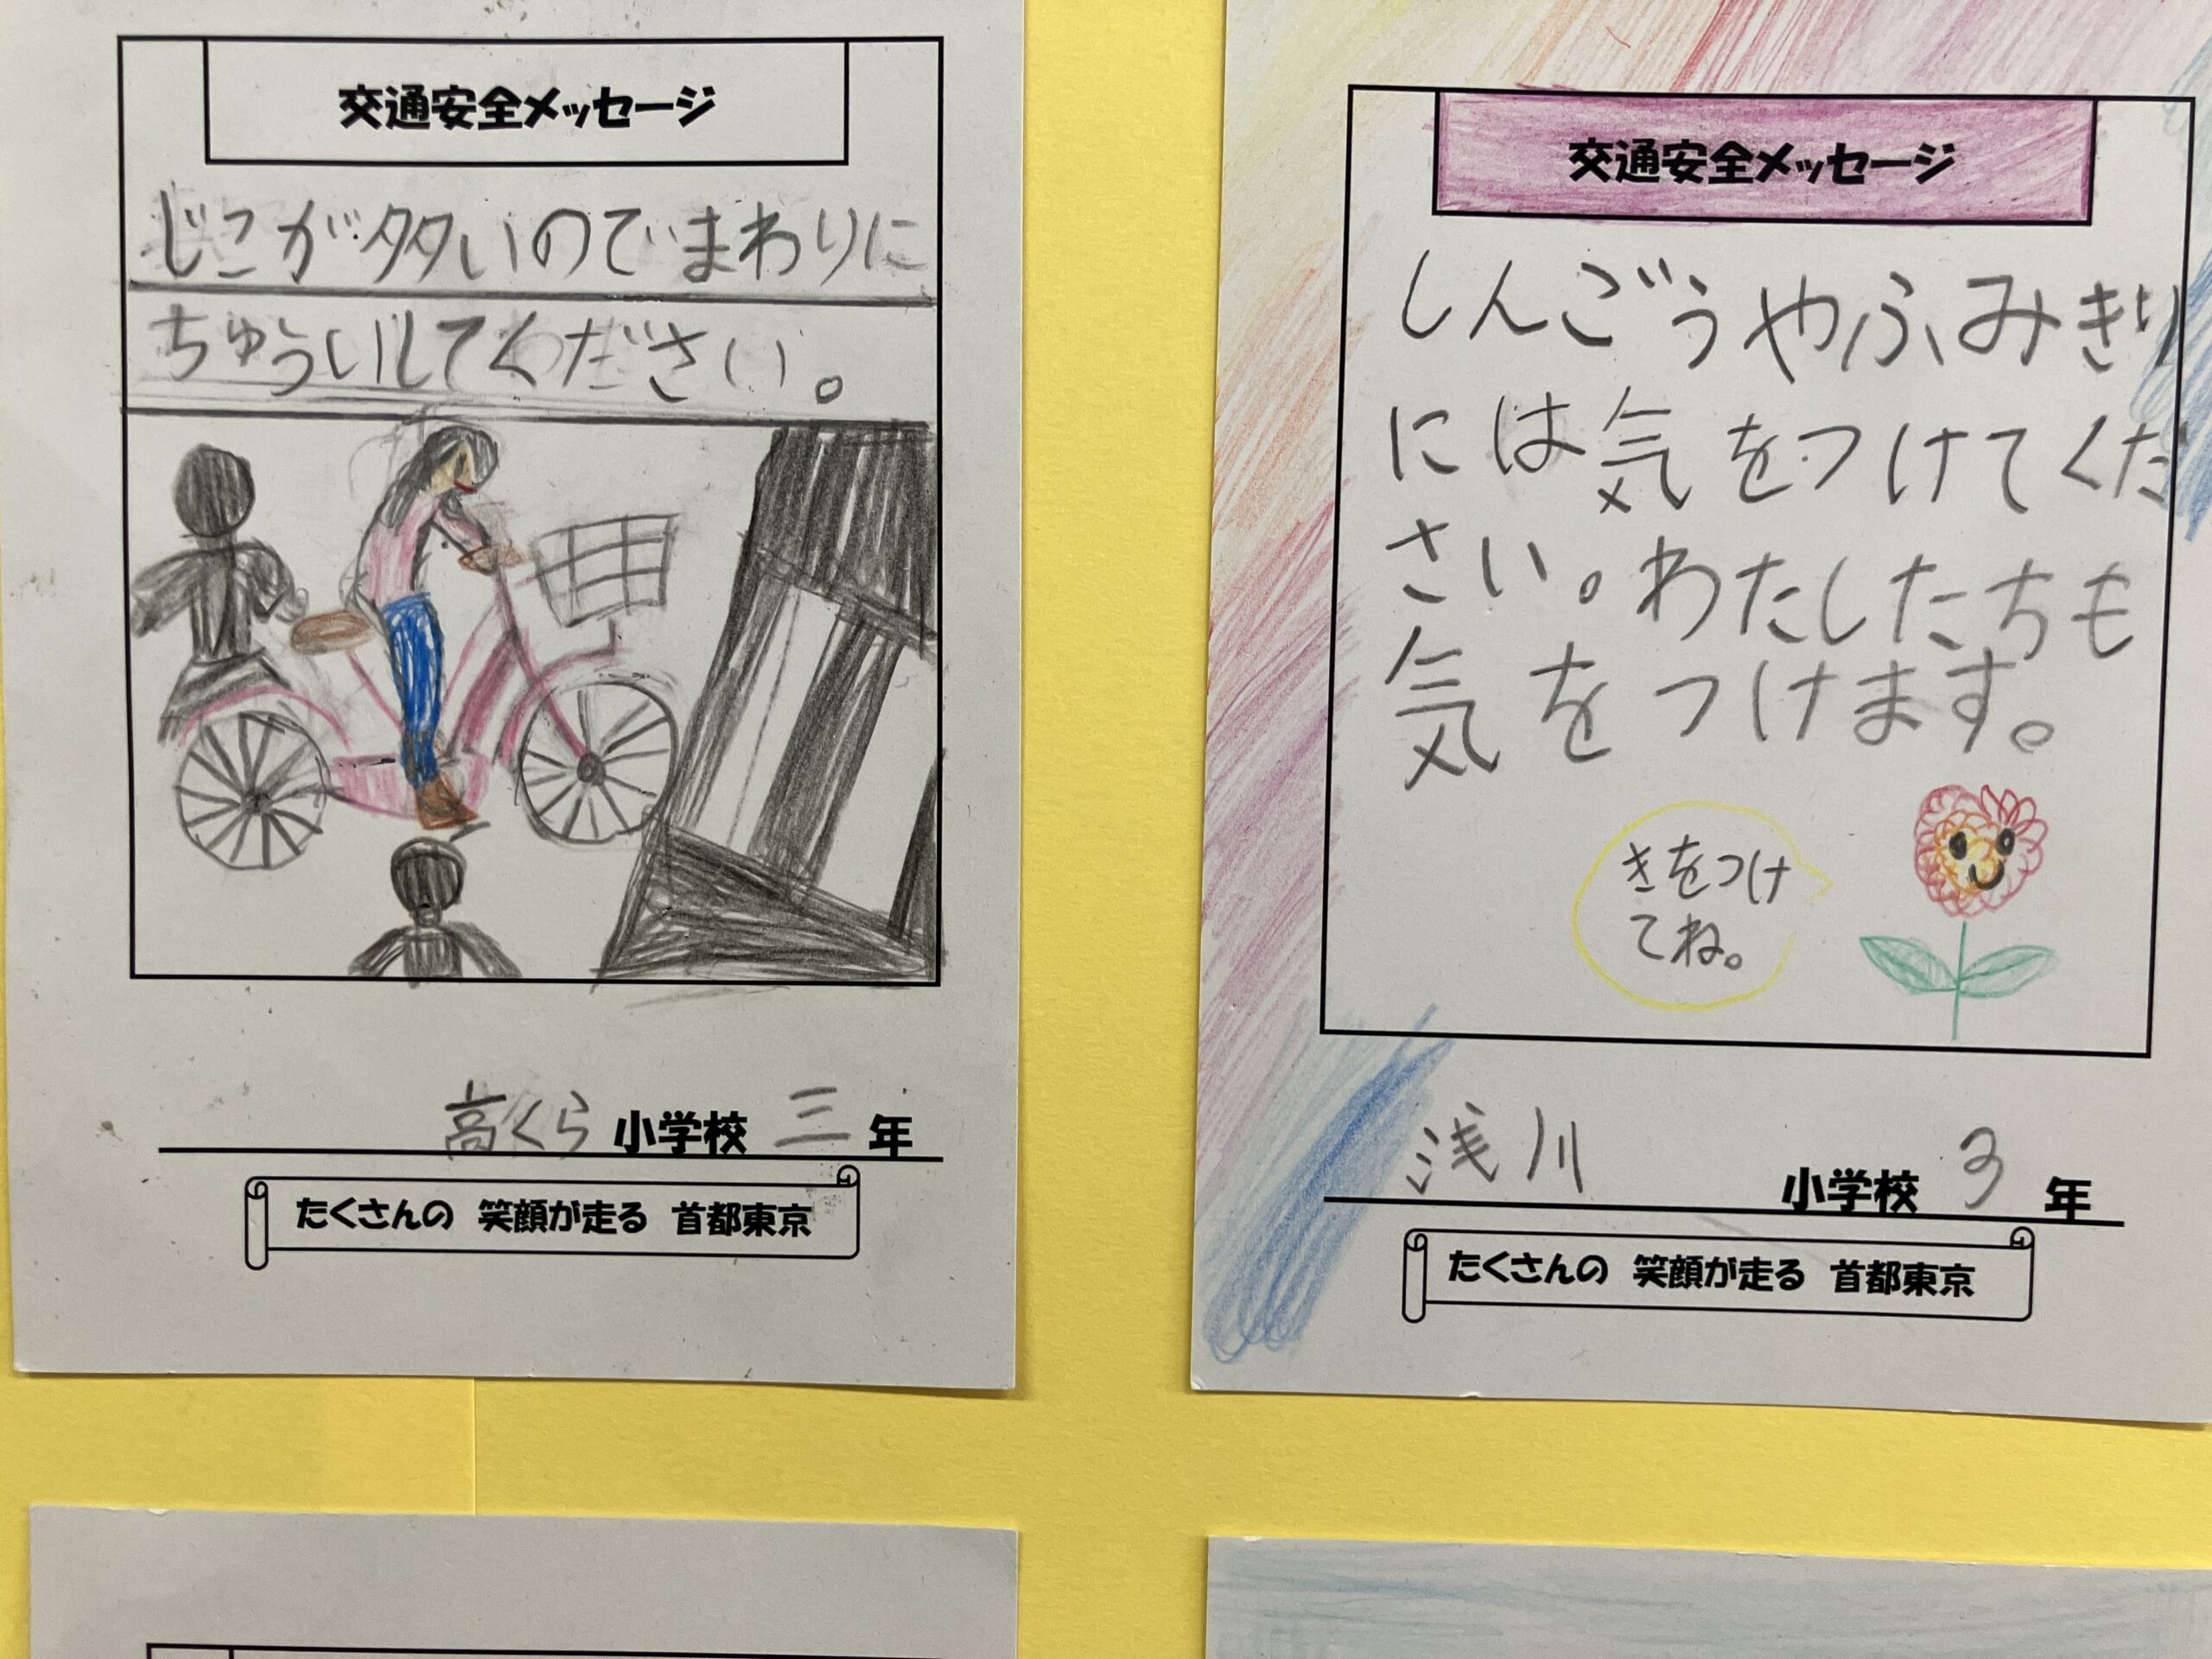 交通安全メッセージ
じこが多いのでまわりに
ちゅういしてください。
高くら小学校 三年
たくさんの 笑顔が走る 首都東京
交通安全メッセージ
しんごうやふみきり
には気をつけてくた
さい。わたしたちも
気をつけます。
きをつけ
てね。
浅川 小学校 3年
たくさんの 笑顔が走る 首都東京